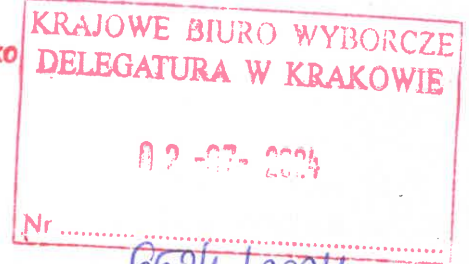 KRAJOWE BIURO WYBORCZE
DELEGATURA W KRAKOWIE
02 -07- 2024
Nr